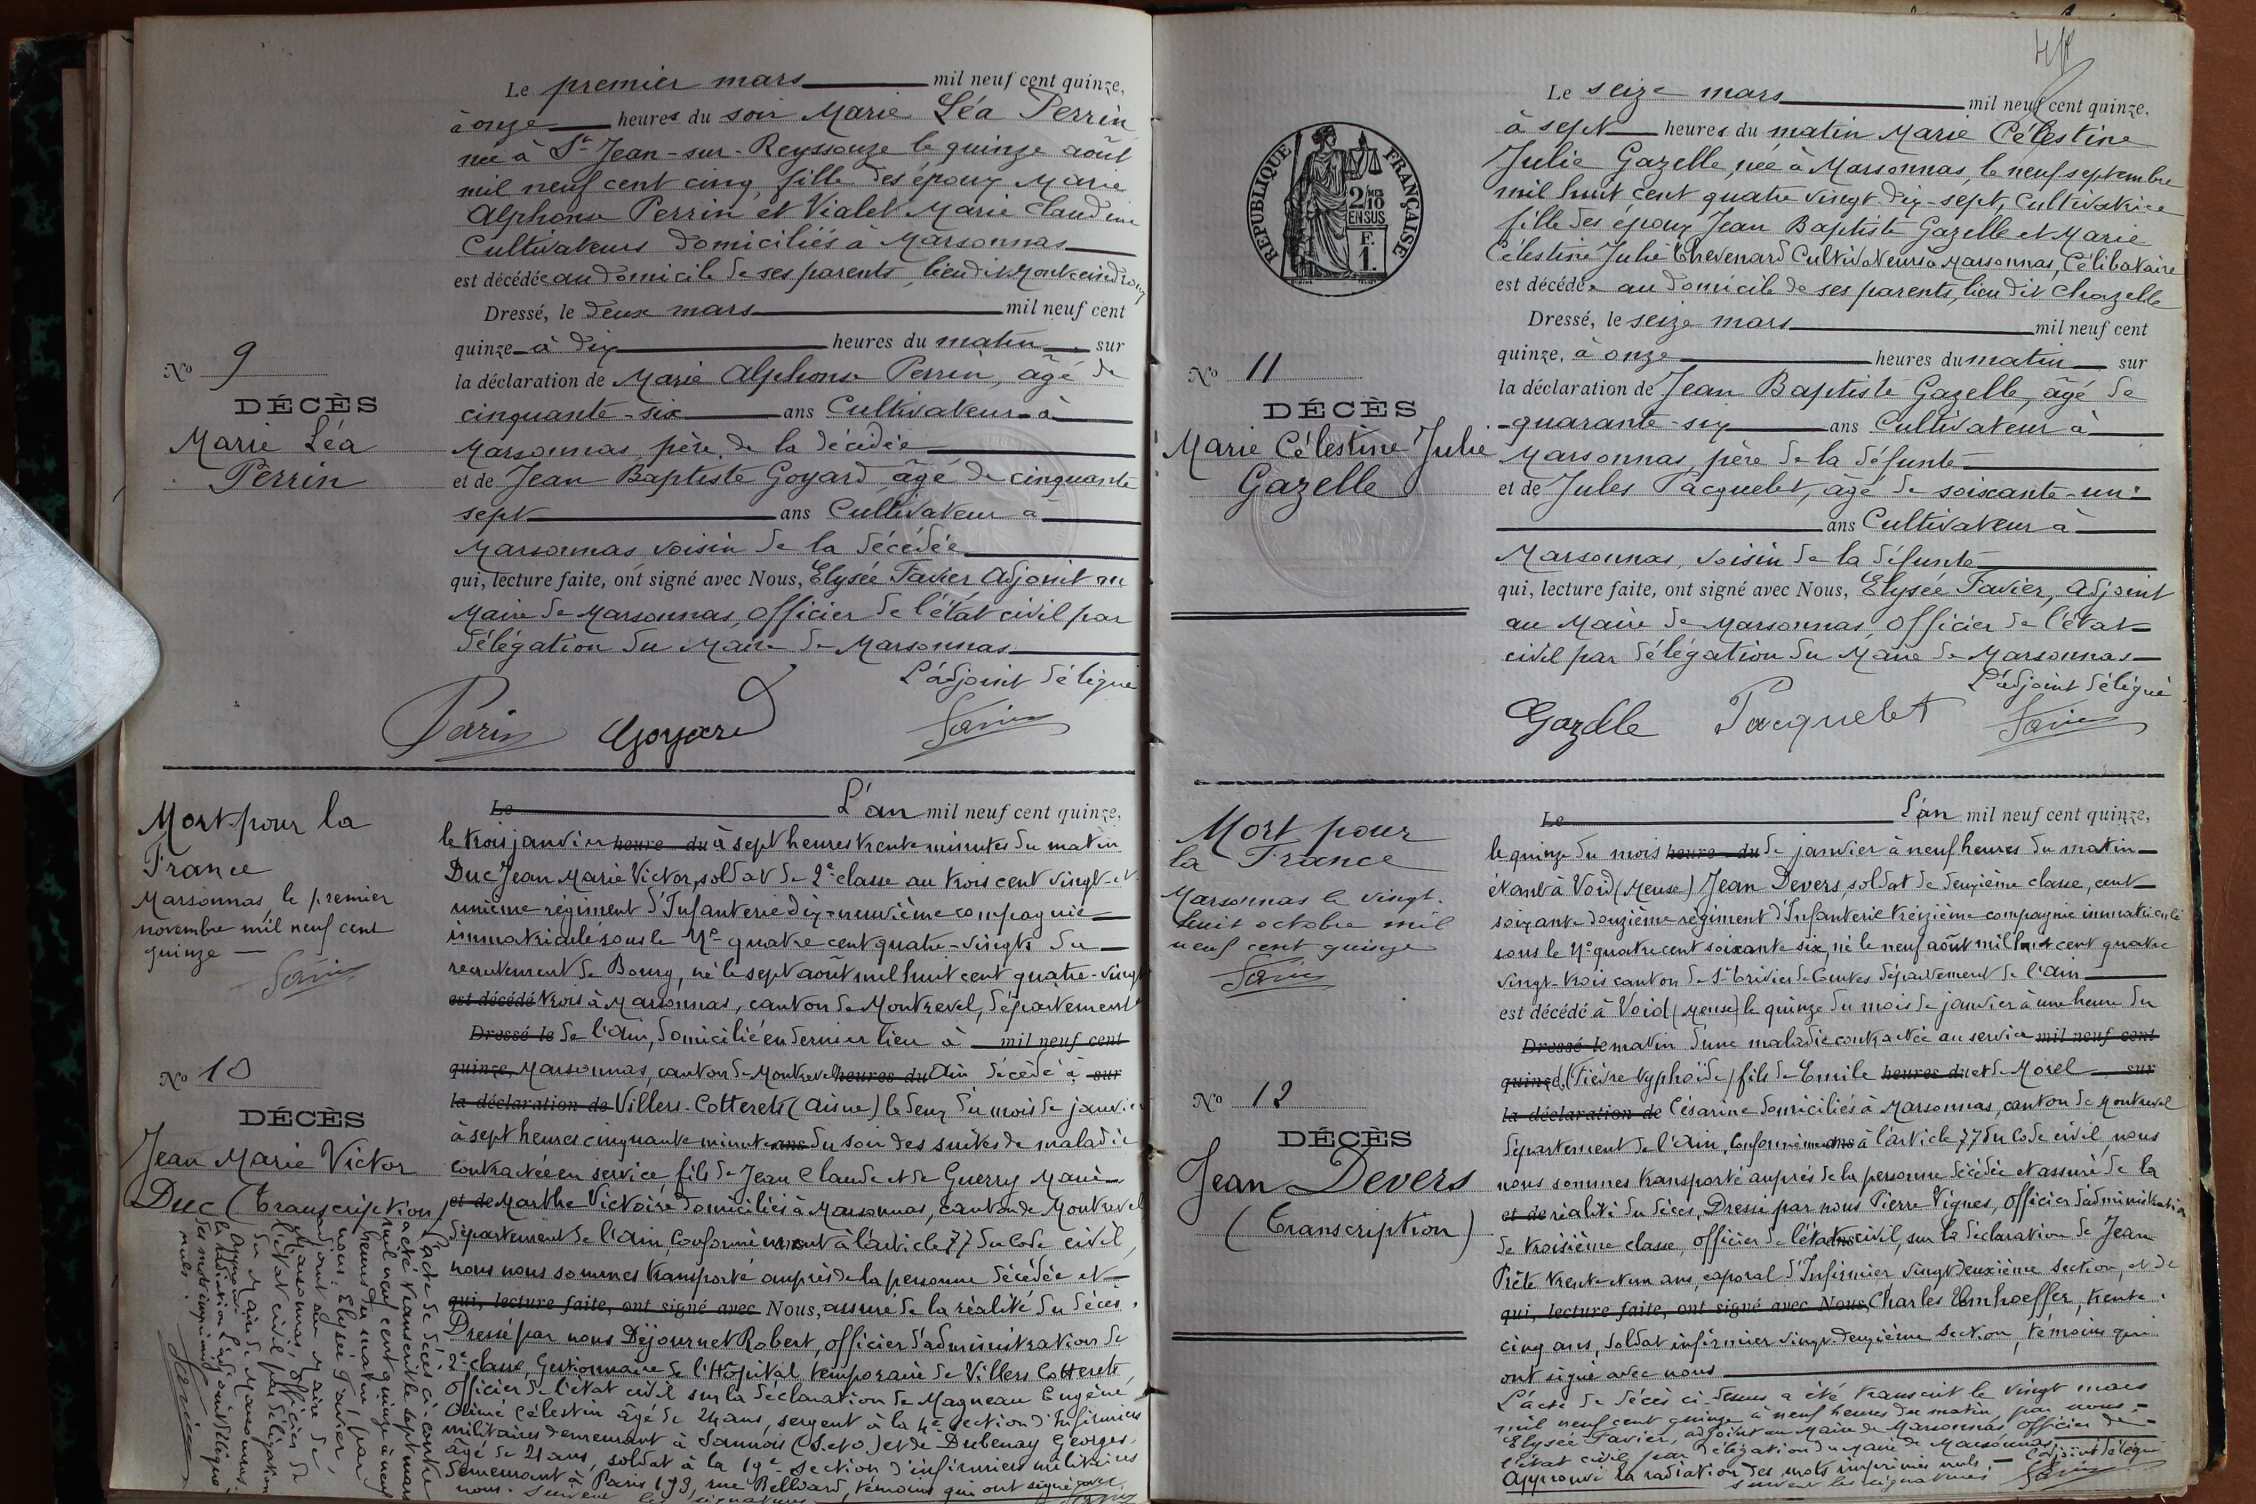 Le premier mars mil neuf cent quinze,
à onze heures du soir Marie Léa Perrin
née à St Jean-sur-Reyssouze le quinze août
mil neuf cent cinq, fille des époux Marie
Alphonse Perrin et Vialet Marie Claudine
Cultivateurs domiciliés à Marsonnas
est décédée au domicile de ses parents, lieu dit
Dressé, le deux mars mil neuf cent
quinze à dix heures du matin sur
la déclaration de Marie Alphonse Perrin, âgé de
cinquante-six ans Cultivateur à
Marsonnas, père de la décédée
et de Jean Baptiste Goyard âgé de cinquante
sept ans Cultivateur à
Marsonnas voisin de la décédée
qui, lecture faite, ont signé avec Nous, Elysée Favier, Adjoint au
Maire de Marsonnas, Officier de l'état civil par
délégation du Maire de Marsonnas
L'adjoint délégué
Perrin Goyard Favier
No 9
DÉCÈS
Marie Léa
Perrin
Mort pour la
France
Marsonnas, le premier
novembre mil neuf cent
quinze
Favier
No 10
DÉCÈS
Jean Marie Victor
Duc (Transcription)
Le L'an mil neuf cent quinze,
le trois janvier heure du à sept heures trente minutes du matin
Duc Jean Marie Victor, soldat de 2e classe au trois cent vingt-et-
unième régiment d'Infanterie dix-neuvième compagnie
immatriculé sous le No quatre cent quatre-vingts du
recrutement de Bourg, né le sept août mil huit cent quatre-vingt
est décédé trois à Marsonnas, canton de Montrevel, département
Dressé le de l'Ain, domicilié en dernier lieu à mil neuf cent
quinze, Marsonnas, canton de Montrevel heures du Ain décédé à sur
la déclaration de Villers-Cotterets (Aisne) le deux du mois de janvier
à sept heures cinquante minutes ans du soir des suites de maladie
contractée en service fils de Jean Claude et de Guerry Marie
et de Marthe Victoire domiciliés à Marsonnas, canton de Montrevel
département de l'Ain, Conformément à l'article 77 du Code civil,
nous nous sommes transporté auprès de la personne décédée et
qui, lecture faite, ont signé avec Nous, assuré de la réalité du décès.
Dressé par nous Déjournet Robert, officier d'administration de
2e classe, Gestionnaire de l'Hôpital temporaire de Villers Cotterets
Officier de l'état civil sur la déclaration de Magneau Eugène,
Célestin âgé de 24 ans, sergent à la 4e section d'Infirmiers
militaires demeurant à Sannois (S. et O.) et de Dubenay Georges,
âgé de 21 ans, soldat à la 19e section d'infirmiers militaires
demeurant à Paris 173, rue Belliard, témoins qui ont signé avec
nous. Suivent les signatures
L'acte de décès ci-contre
a été transcrit le sept mars
mil neuf cent quinze à neuf
heures du matin, par
nous, Elysée Favier,
adjoint au Maire de
Marsonnas, officier de
l'état civil par délégation
du Maire de Marsonnas.
Approuvé L'adjoint délégué,
la radiation
des mots imprimés
nuls.
Favier
Le seize mars mil neuf cent quinze,
à sept heures du matin Marie Célestine
Julie Gazelle, née à Marsonnas, le neuf septembre
mil huit cent quatre vingt dix-sept, Cultivatrice
fille des époux Jean Baptiste Gazelle et Marie
Célestine Julie Chevenard Cultivateurs à Marsonnas, Célibataire
est décédée au domicile de ses parents, lieu dit Chazelle
Dressé, le seize mars mil neuf cent
quinze, à onze heures du matin sur
la déclaration de Jean Baptiste Gazelle, âgé de
quarante-six ans Cultivateur à
Marsonnas, père de la défunte
et de Jules Pacquelet, âgé de soixante-un
ans Cultivateur à
Marsonnas, voisin de la défunte
qui, lecture faite, ont signé avec Nous, Elysée Favier, Adjoint
au Maire de Marsonnas, Officier de l'état
civil par délégation du Maire de Marsonnas
L'adjoint délégué
Gazelle Pacquelet Favier
RÉPUBLIQUE FRANÇAISE
2/10
EN SUS
F.
1.
No 11
DÉCÈS
Marie Célestine Julie
Gazelle
Mort pour
la France
Marsonnas le vingt-
huit octobre mil
neuf cent quinze
Favier
No 12
DÉCÈS
Jean Devers
(Transcription)
Le L'an mil neuf cent quinze,
le quinze du mois heure du de janvier à neuf heures du matin
étant à Void (Meuse) Jean Devers, soldat de deuxième classe, cent
soixante douzième régiment d'Infanterie treizième compagnie immatriculé
sous le No quatre cent soixante six, né le neuf août mil huit cent quatre
vingt-trois canton de St Trivier de Courtes département de l'Ain
est décédé à Void (Meuse) le quinze du mois de janvier à une heure du
Dressé le matin d'une maladie contractée au service mil neuf cent
quinze, (Fièvre typhoïde) fils de Emile heures du et de Morel sur
la déclaration de Césarine domiciliés à Marsonnas, canton de Montrevel
département de l'Ain, Conformément ans à l'article 77 du Code civil, nous
nous sommes transporté auprès de la personne décédée et assuré de la
et de réalité du décès, Dressé par nous Pierre Vignes, Officier d'administration
de troisième classe, officier de l'état ans civil, sur la déclaration de Jean
Prête trente et un ans, caporal d'Infirmier vingt deuxième section, et de
qui, lecture faite, ont signé avec Nous, Charles Emhoeffer, trente
cinq ans, soldat infirmier vingt-deuxième section, témoins qui
ont signé avec nous
L'acte de décès ci-dessus a été transcrit le vingt mars
mil neuf cent quinze à neuf heures du matin, par nous
Elysée Favier, adjoint au Maire de Marsonnas, officier de
l'état civil par délégation du Maire de Marsonnas.
Approuvé la radiation des mots imprimés nuls. L'adjoint délégué
suivent les signatures Favier